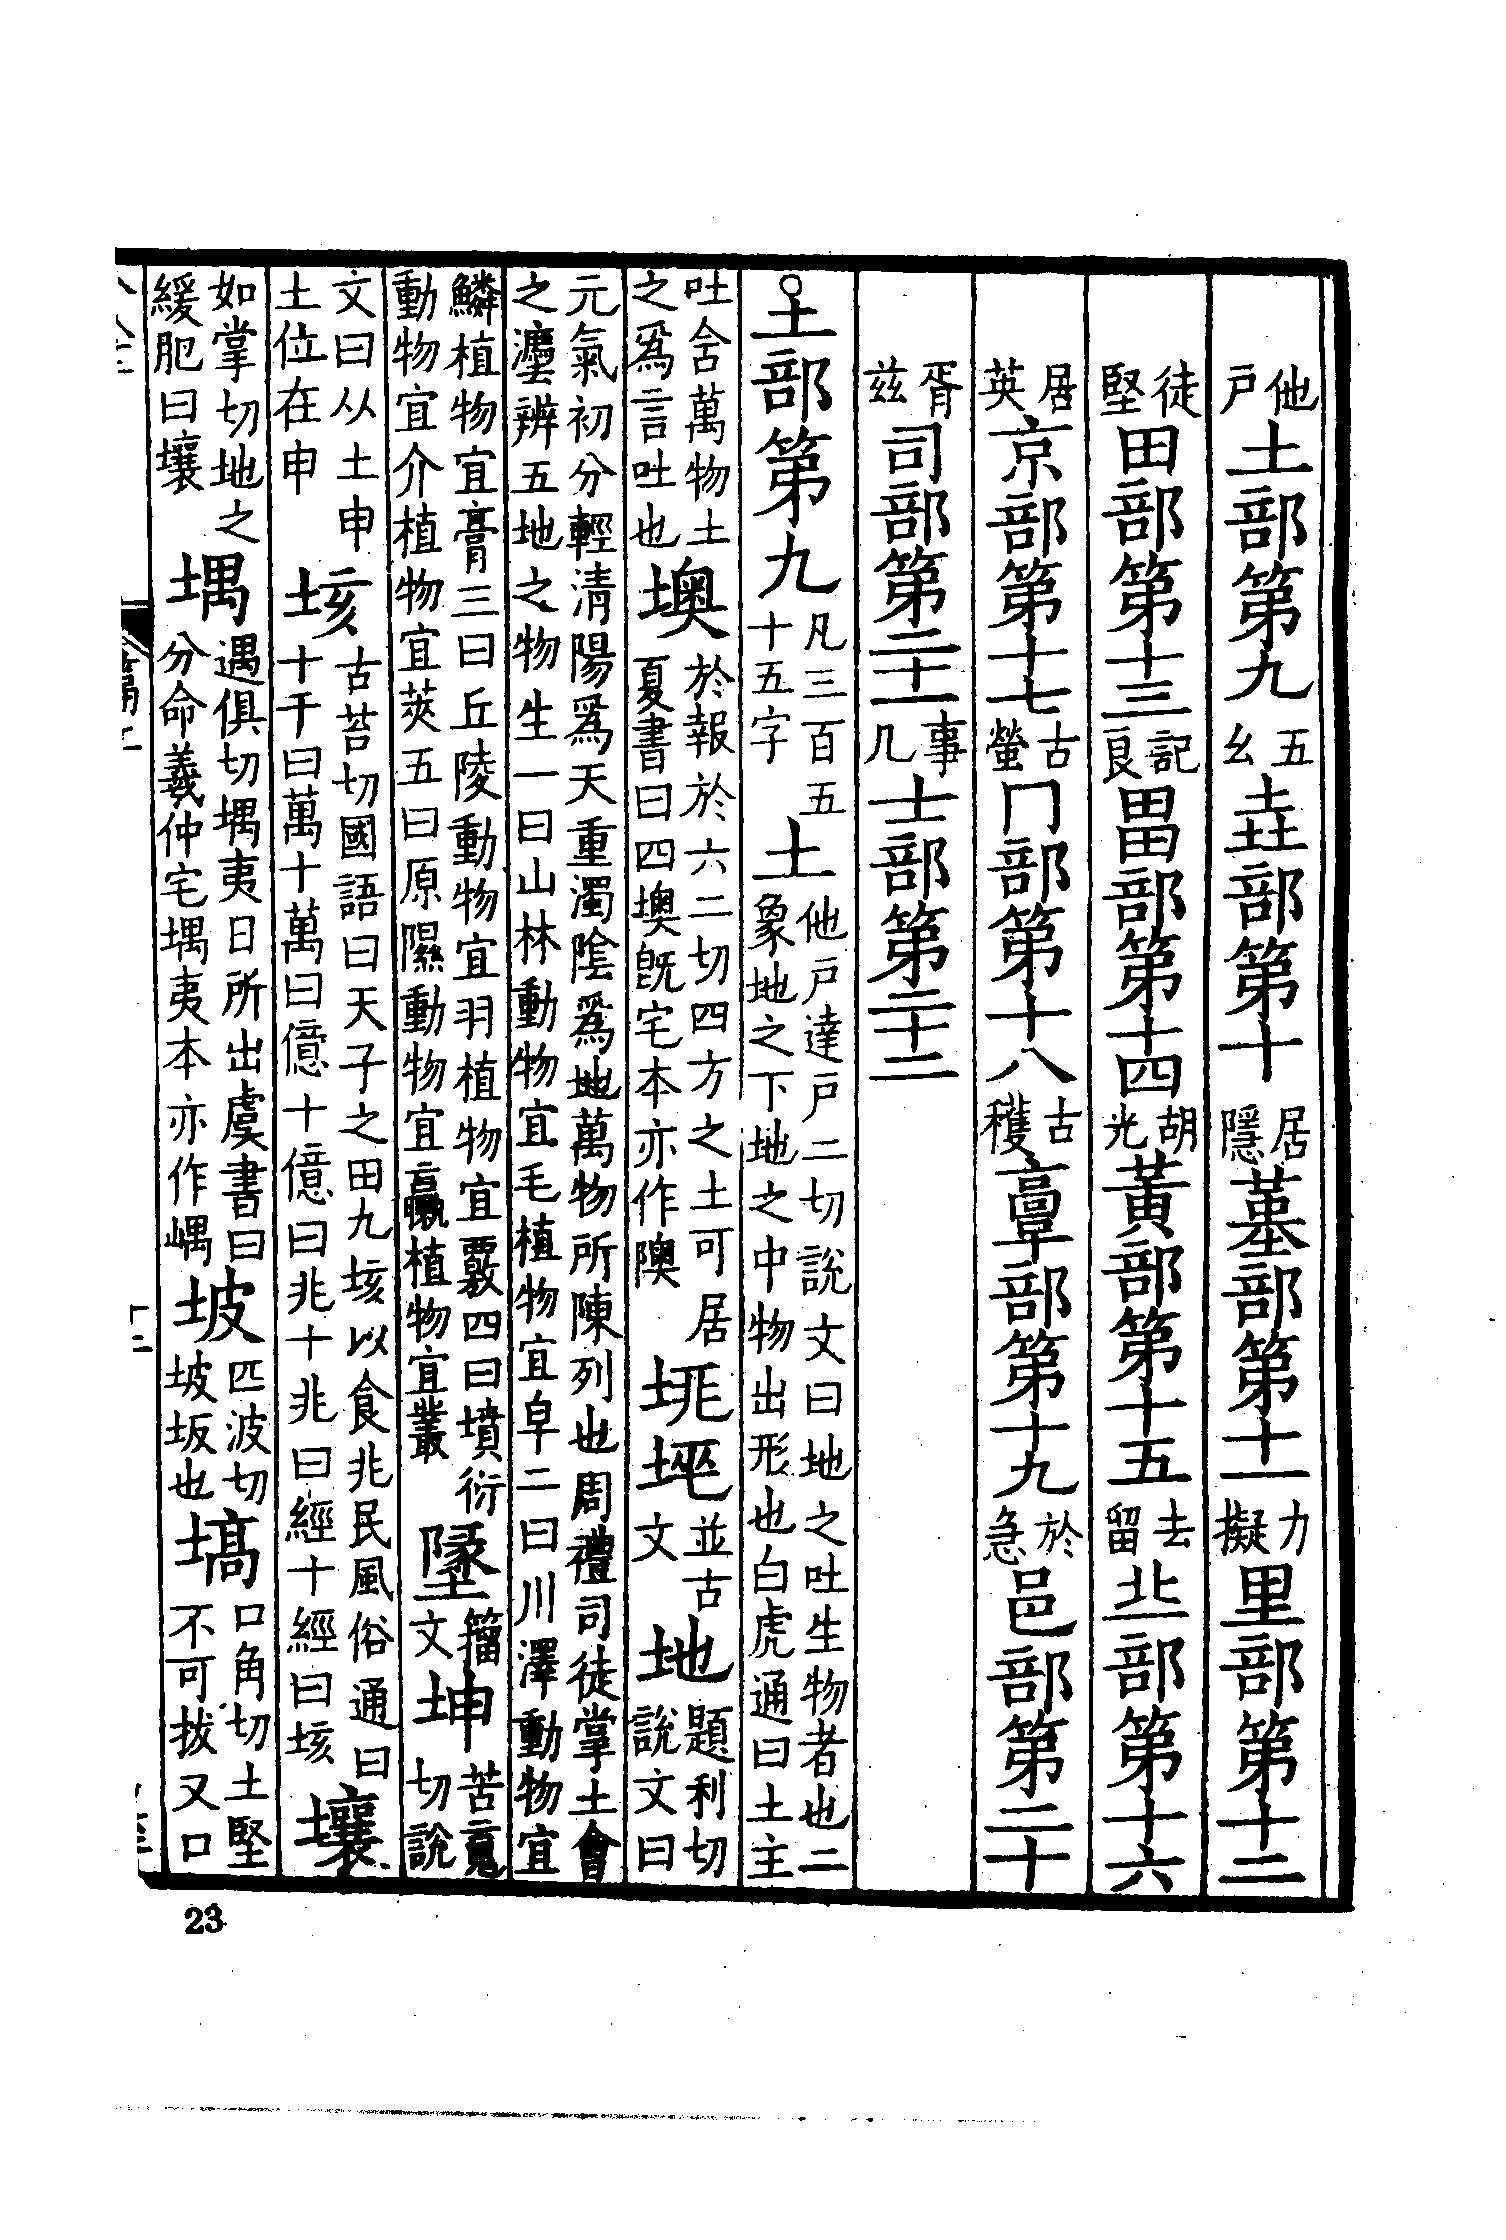 他戶土部第九五么垚部第十居隱堇部第十一力擬里部第十二
徒堅田部第十三記良畕部第十四胡光黃部第十五去留丠部第十六
居英京部第十七古螢冂部第十八古穫𩫏部第十九於急邑部第二十
胥茲司部第二十一事几士部第二十二
○土部第九凡三百五十五字土他戶達戶二切說文曰地之吐生物者也二象地之下地之中物出形也白虎通曰土主
吐含萬物土之爲言吐也墺於報於六二切四方之土可居夏書曰四墺旣宅本亦作隩並古文地題利切說文曰
元氣初分輕清陽爲天重濁陰爲地萬物所陳列也周禮司徒掌土會之灋辨五地之物生一曰山林動物宜毛植物宜皁二曰川澤動物宜
鱗植物宜膏三曰丘陵動物宜羽植物宜覈四曰墳衍動物宜介植物宜莢五曰原隰動物宜臝植物宜叢墬籀文坤苦䰟切說
文曰从土申土位在申垓古苔切國語曰天子之田九垓以食兆民風俗通曰十千曰萬十萬曰億十億曰兆十兆曰經十經曰垓壤
如掌切地之緩肥曰壤堣遇俱切堣夷日所出虞書曰分命羲仲宅堣夷本亦作嵎坡匹波切坡坂也塙口角切土堅不可拔又口
23